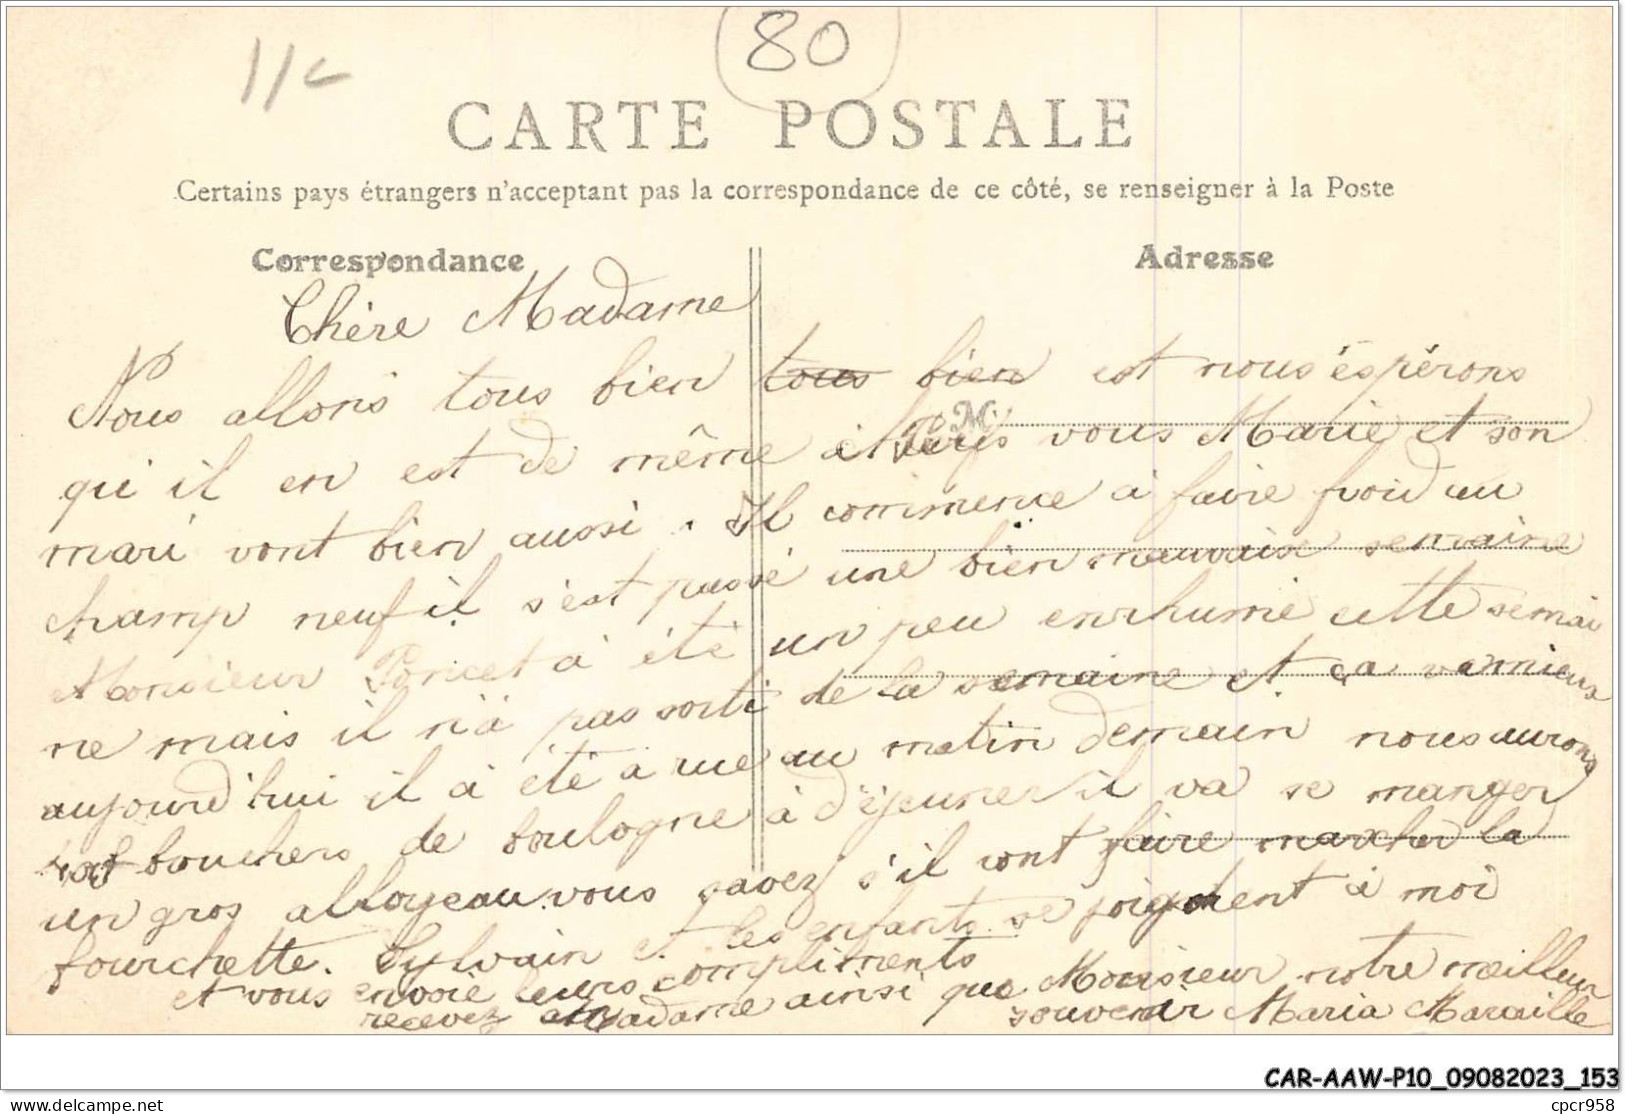 11c
80
CARTE POSTALE
Certains pays étrangers n'acceptant pas la correspondance de ce côté, se renseigner à la Poste
Correspondance
Adresse
Chère Madame
Nous allons tous bien tous bien est nous éspérons
qui il en est de même à vous Marie et son
mari vont bien aussi. Il commence à faire froid au
champ neuf il s'est passé une bien mauvaise semaine
Monsieur Poncet à été un peu enrhumé cette semai
ne mais il n'à pas sorti de la semaine et ça va mieux
aujourd'hui il à été à rue au matin demain nous aurons
bouchers de boulogne à déjeuner il va se manger
un gros alloyeau vous savez s'il vont faire marcher la
fourchette. Sylvain et les enfants se joignent à moi
et vous envoie leurs compliments
recevez Madame ainsi que Monsieur notre meilleur
souvenir Maria Maraille
CAR-AAW-P10_09082023_153
www.delcampe.net
cpcr958